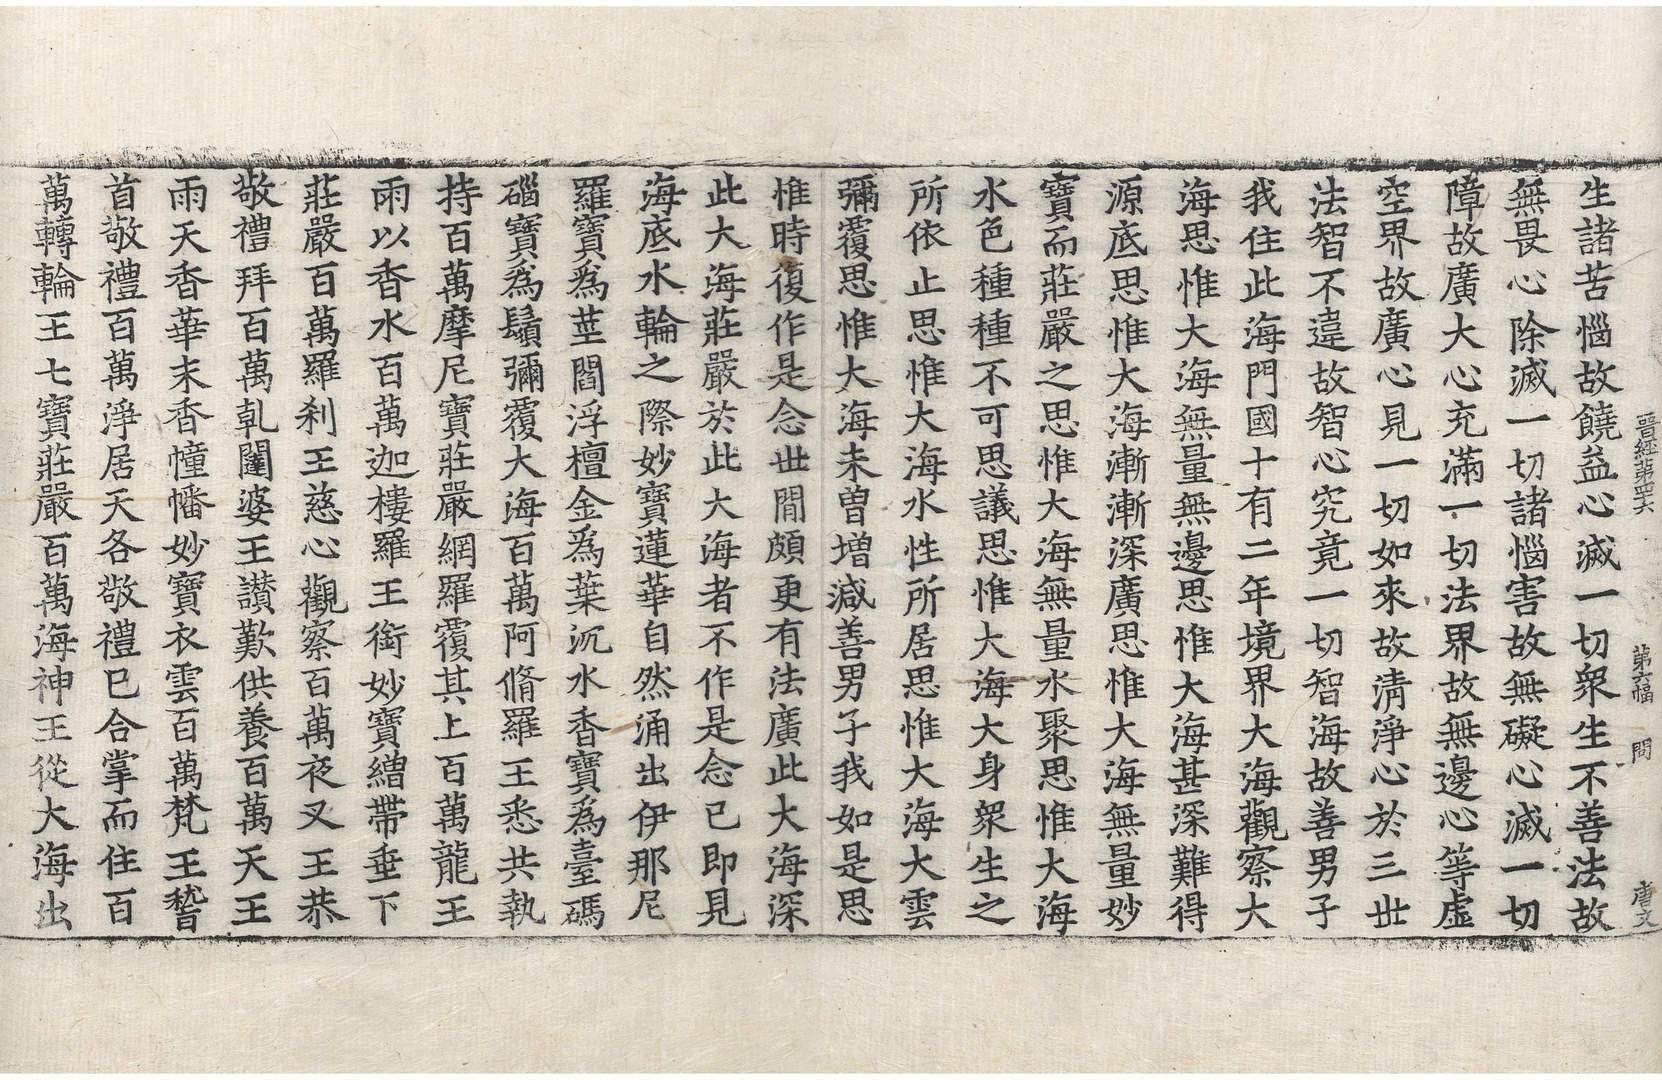 晋經第四六 第六幅 問 唐文
生諸苦惱故饒益心滅一切衆生不善法故
無畏心除滅一切諸惱害故無礙心滅一切
障故廣大心充滿一切法界故無邊心等虛
空界故廣心見一切如來故清淨心於三世
法智不違故智心究竟一切智海故善男子
我住此海門國十有二年境界大海觀察大
海思惟大海無量無邊思惟大海甚深難得
源底思惟大海漸漸深廣思惟大海無量妙
寶而莊嚴之思惟大海無量水聚思惟大海
水色種種不可思議思惟大海大身衆生之
所依止思惟大海水性所居思惟大海大雲
彌覆思惟大海未曽增減善男子我如是思
惟時復作是念世間頗更有法廣此大海深
此大海莊嚴於此大海者不作是念已即見
海底水輪之際妙寶蓮華自然涌出伊那尼
羅寶爲莖閻浮檀金爲葉沉水香寶爲臺碼
碯寶爲鬚彌覆大海百萬阿脩羅王悉共執
持百萬摩尼寶莊嚴網羅覆其上百萬龍王
雨以香水百萬迦樓羅王銜妙寶繒帶垂下
莊嚴百萬羅刹王慈心觀察百萬夜叉王恭
敬禮拜百萬乹闥婆王讃歎供養百萬天王
雨天香華末香幢幡妙寶衣雲百萬梵王稽
首敬禮百萬淨居天各敬禮已合掌而住百
萬轉輪王七寶莊嚴百萬海神王從大海出